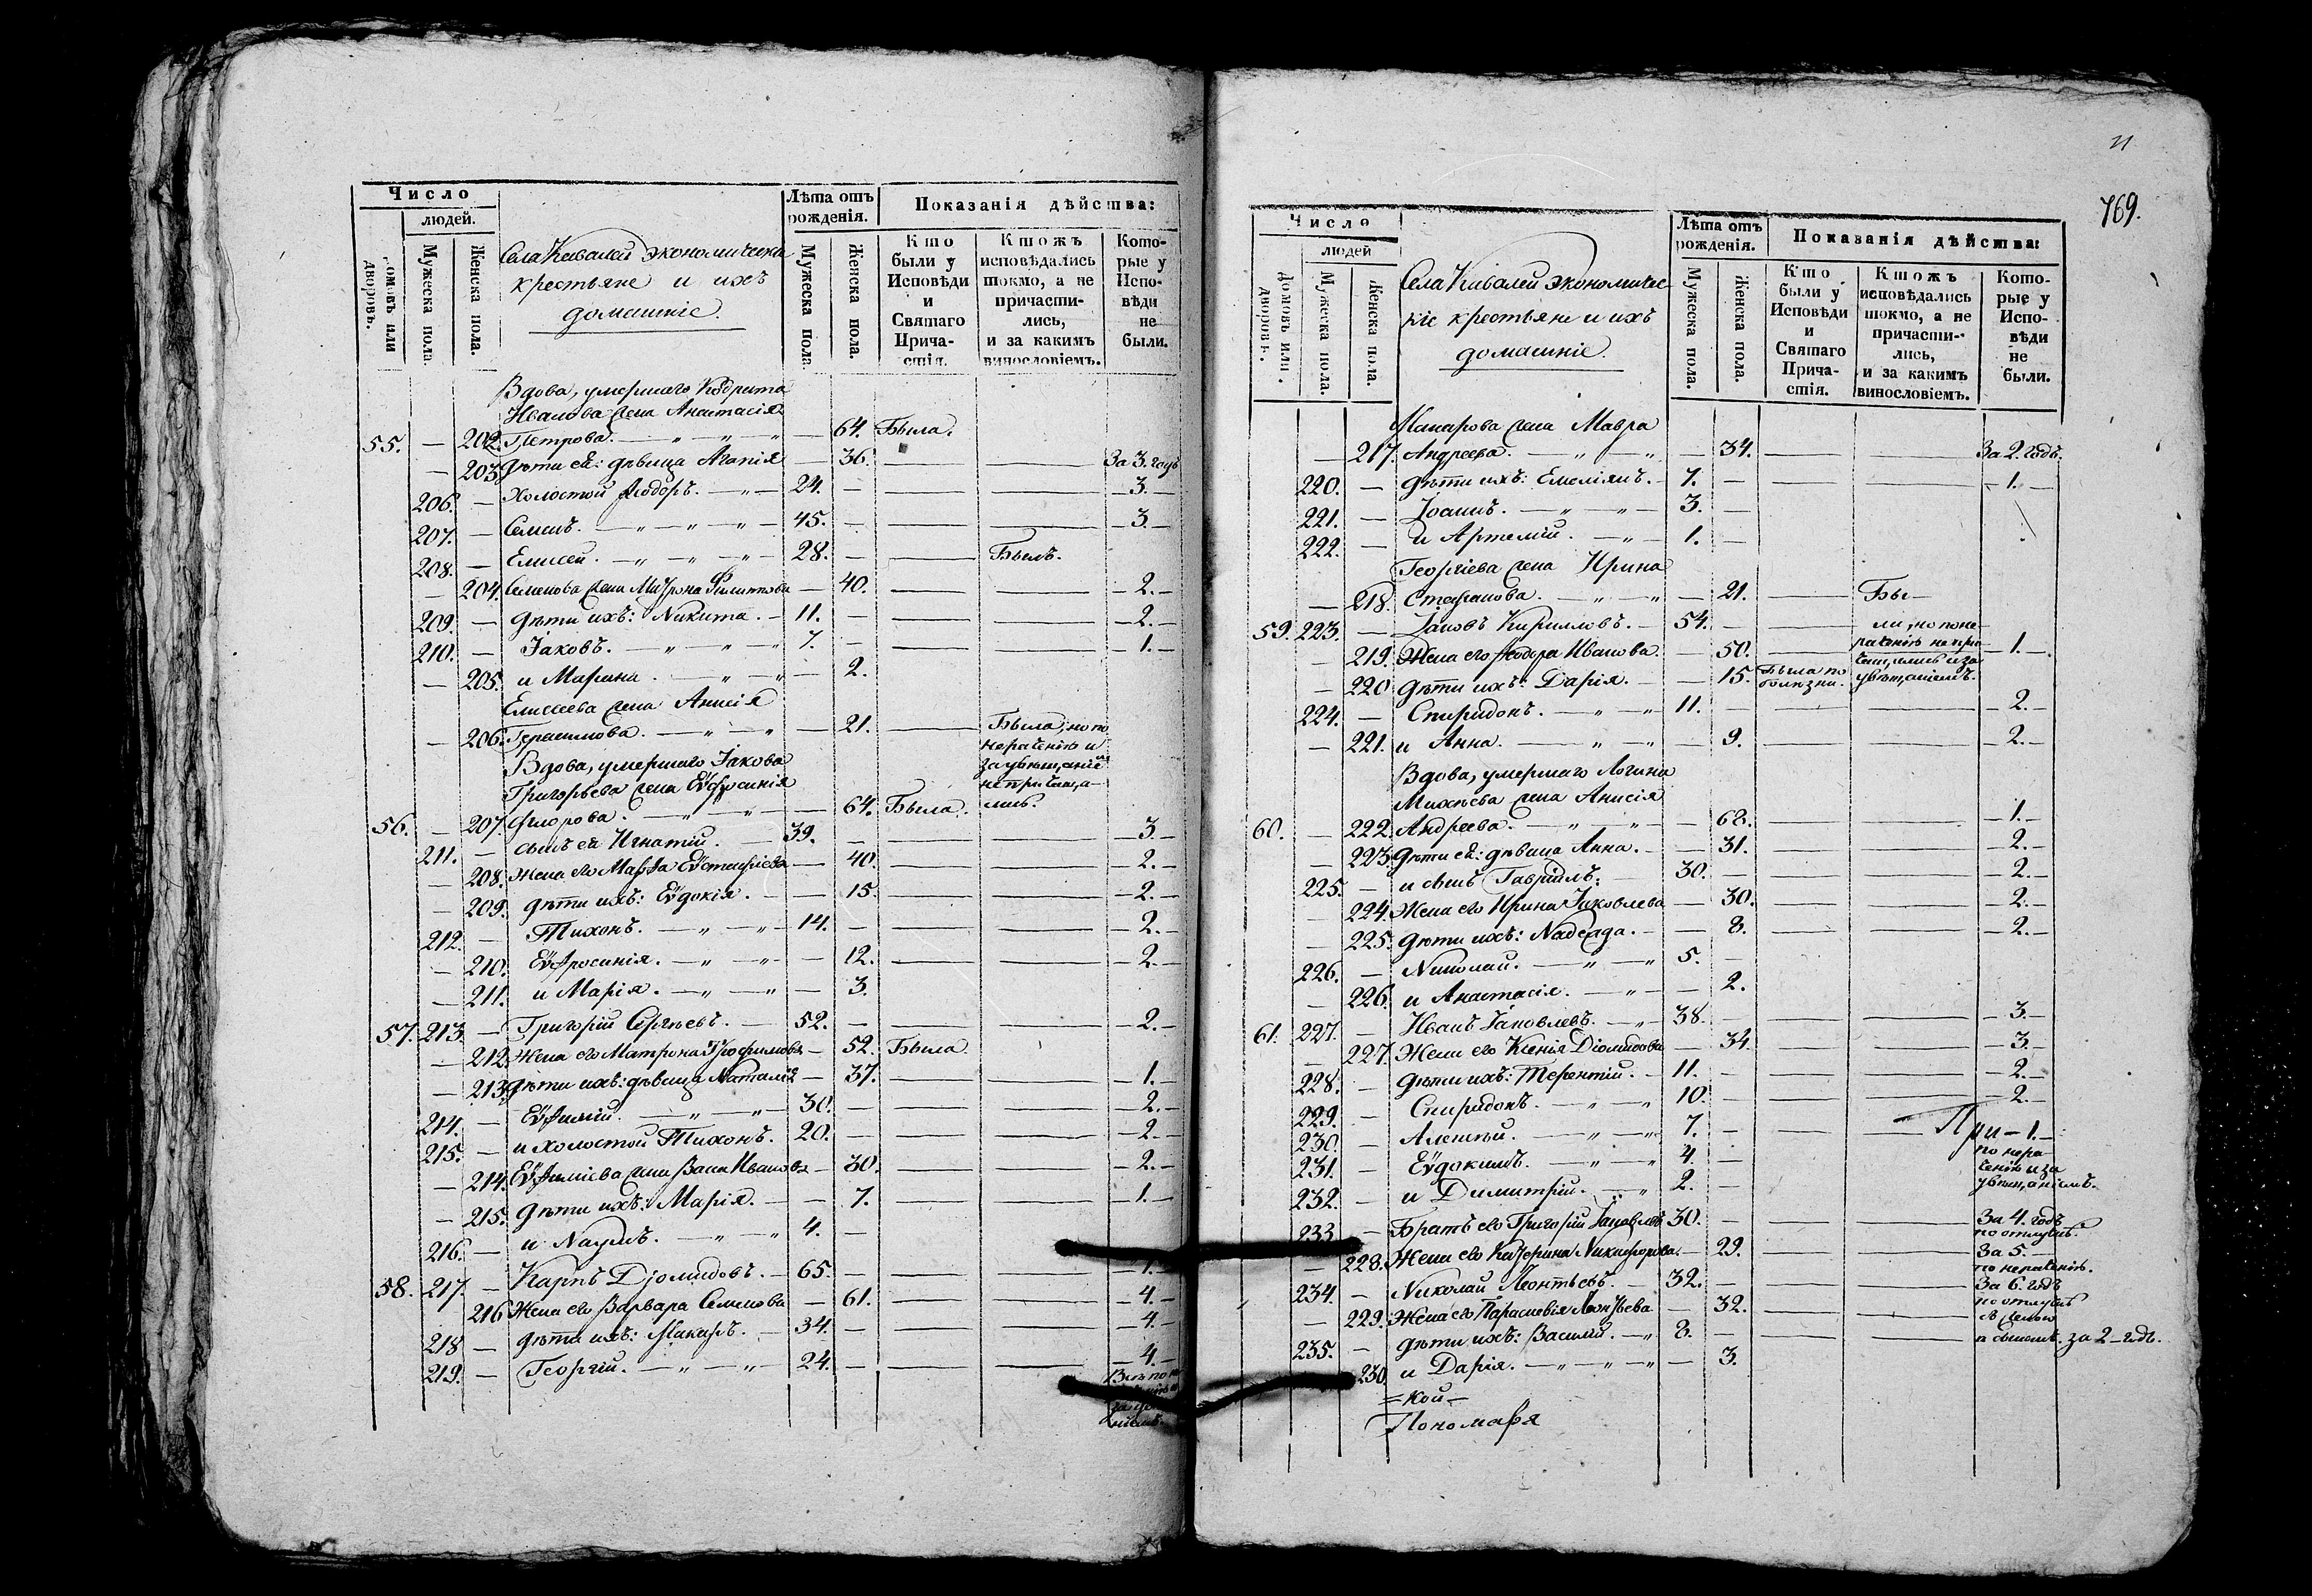 Число
людей.
Домовъ или дворовъ.
Мужеска пола.
Женска пола.
Села Кивалей экономическіе
крестьяне и ихъ
домашніе.
Лѣта отъ рожденія.
Мужеска пола.
Женска пола.
Показанія дѣйства:
Кто были у Исповѣди и Святаго Причастія.
Ктожъ исповѣдались токмо, а не причастились, и за какимъ винословіемъ.
Которые у Исповѣди не были.
Вдова, умершаго
Иванова жена Анастасія
55. — 202. Петрова. — 64. Была.
— 203. Дѣти ея: дѣвица Агапія — 36. — — За 3. годъ
206. — Холостой Ѳеодоръ. — 24. — — — 3. —
207. — Семенъ. — 45. — — — 3. —
208. — Елисей. — 28. — — Былъ.
— 204. Семенова жена Филиппова — 40. — — — 2. —
209. — Дѣти ихъ: Никита. — 11. — — — 2. —
210. — Іаковъ. — 7. — — — 1. —
— 205. и Марина. — 2.
Елисеева жена Анисія
— 206. Герасимова. — 21. — Была, но по
нераченію и
за увѣщаніемъ
не причаща-
лись.
Вдова, умершаго Іакова
Григорьева жена Еѵфросинія
56. — 207. — 64. Была.
211. — сынъ ея Игнатій. — 39. — — — 3. —
— 208. Жена его Марѳа Еѵстафіева — 40. — — — 2. —
— 209. дѣти ихъ: Еѵдокія. — 15. — — — 2. —
212. — Тихонъ. — 14. — — — 2. —
— 210. Еѵфросинія. — 12. — — — 2. —
— 211. и Марія. — 3.
57. 213. — Григорій Сергѣевъ. — 52. — — — 2. —
— 212. Жена его Матрона Трофимова — 52. Была.
— 213. Дѣти ихъ: дѣвица Наталія — 37. — — — 1. —
214. — Еѵѳимій. — 30. — — — 2. —
215. — и холостой Тихонъ. 20. — — — 2. —
— 214. Еѵѳиміева жена Васса Иванова — 30. — — — 2. —
— 215. Дѣти ихъ: Марія. — 7. — — — 1. —
216. — и Наумъ. — 4. —
58. 217. — Карпъ Діомидовъ. — 65. — — — 1. —
— 216. Жена его Варвара Семенова — 61. — — — 4. —
218. — дѣти ихъ: Макаръ. — 34. — — — 4. —
219. — Георгій. — 24. — — — 4. —
Всѣ по
21
769.
Число
людей
Домовъ или дворовъ.
Мужеска пола.
Женска пола.
Села Кивалей экономичес-
кіе крестьяне и ихъ
домашніе.
Лѣта отъ рожденія.
Мужеска пола.
Женска пола.
Показанія дѣйства:
Кто были у Исповѣди и Святаго Причастія.
Ктожъ исповѣдались токмо, а не причастились, и за какимъ винословіемъ.
Которые у Исповѣди не были.
Макарова жена Мавра
— 217. Андреева. — 34. — — За 2. годъ.
220. — Дѣти ихъ: Емеліянъ. — 7. — — — 1. —
221. — Іоаннъ. — 3. —
222. — и Артемій. — 1. —
Георгіева жена Ирина
— 218. Стефанова. — 21. — Бы—
59. 223. — Іаковъ Кирилловъ. — 54. — — ли, но по не-
— 219. Жена его Ѳеодора Иванова. — 50. — раченію не при- — 1. —
чащались и за
— 220. Дѣти ихъ: Дарія. — 15. Была по болезни. увѣщаніемъ.
224. — Спиридонъ. — 11. — — — 2. —
— 221. и Анна. — 9. — — — 2. —
Вдова, умершаго Логина
Михѣева жена Анисія
60. — 222. Андреева. — 68. — — — 1. —
— 223. Дѣти ея: дѣвица Анна. — 31. — — — 2. —
225. — и сынъ Гавріилъ. 30. — — — 2. —
— 224. Жена его Ирина Іаковлева — 30. — — — 2. —
— 225. Дѣти ихъ: Надежда. — 8. — — — 2. —
226. — Николай. — 5. —
— 226. и Анастасія. — 2.
61. 227. — Иванъ Іаковлевъ. — 38. — — — 3. —
— 227. Жена его Ксенія Діомидова — 34. — — — 3. —
228. — Дѣти ихъ: Терентій. — 11. — — — 2. —
229. — Спиридонъ. — 10. — — — 2. —
230. — Алексѣй. — 7. — — При — 1. —
231. — Еѵдокимъ. — 4. — по нера-
ченію и за
232. — и Димитрій. — 2. — увѣщаніемъ.
233. — Братъ его Григорій Іаковлевъ 30. — — — За 4. годъ
по отлучкѣ.
— 228. Жена его Катерина Никифорова. — 29. — — За 5. —
по нераченію.
234. — Николай Леонтьевъ. — 32. — — — За 6. годъ
по отлучкѣ
— 229. Жена его Параскевія Леонтьева — 32. — — съ женою
235. — Дѣти ихъ: Василій. — 8. — — — а сыномъ. за 2 — годъ.
— 230. и Дарія. — 3.
= кой —
Пономаря